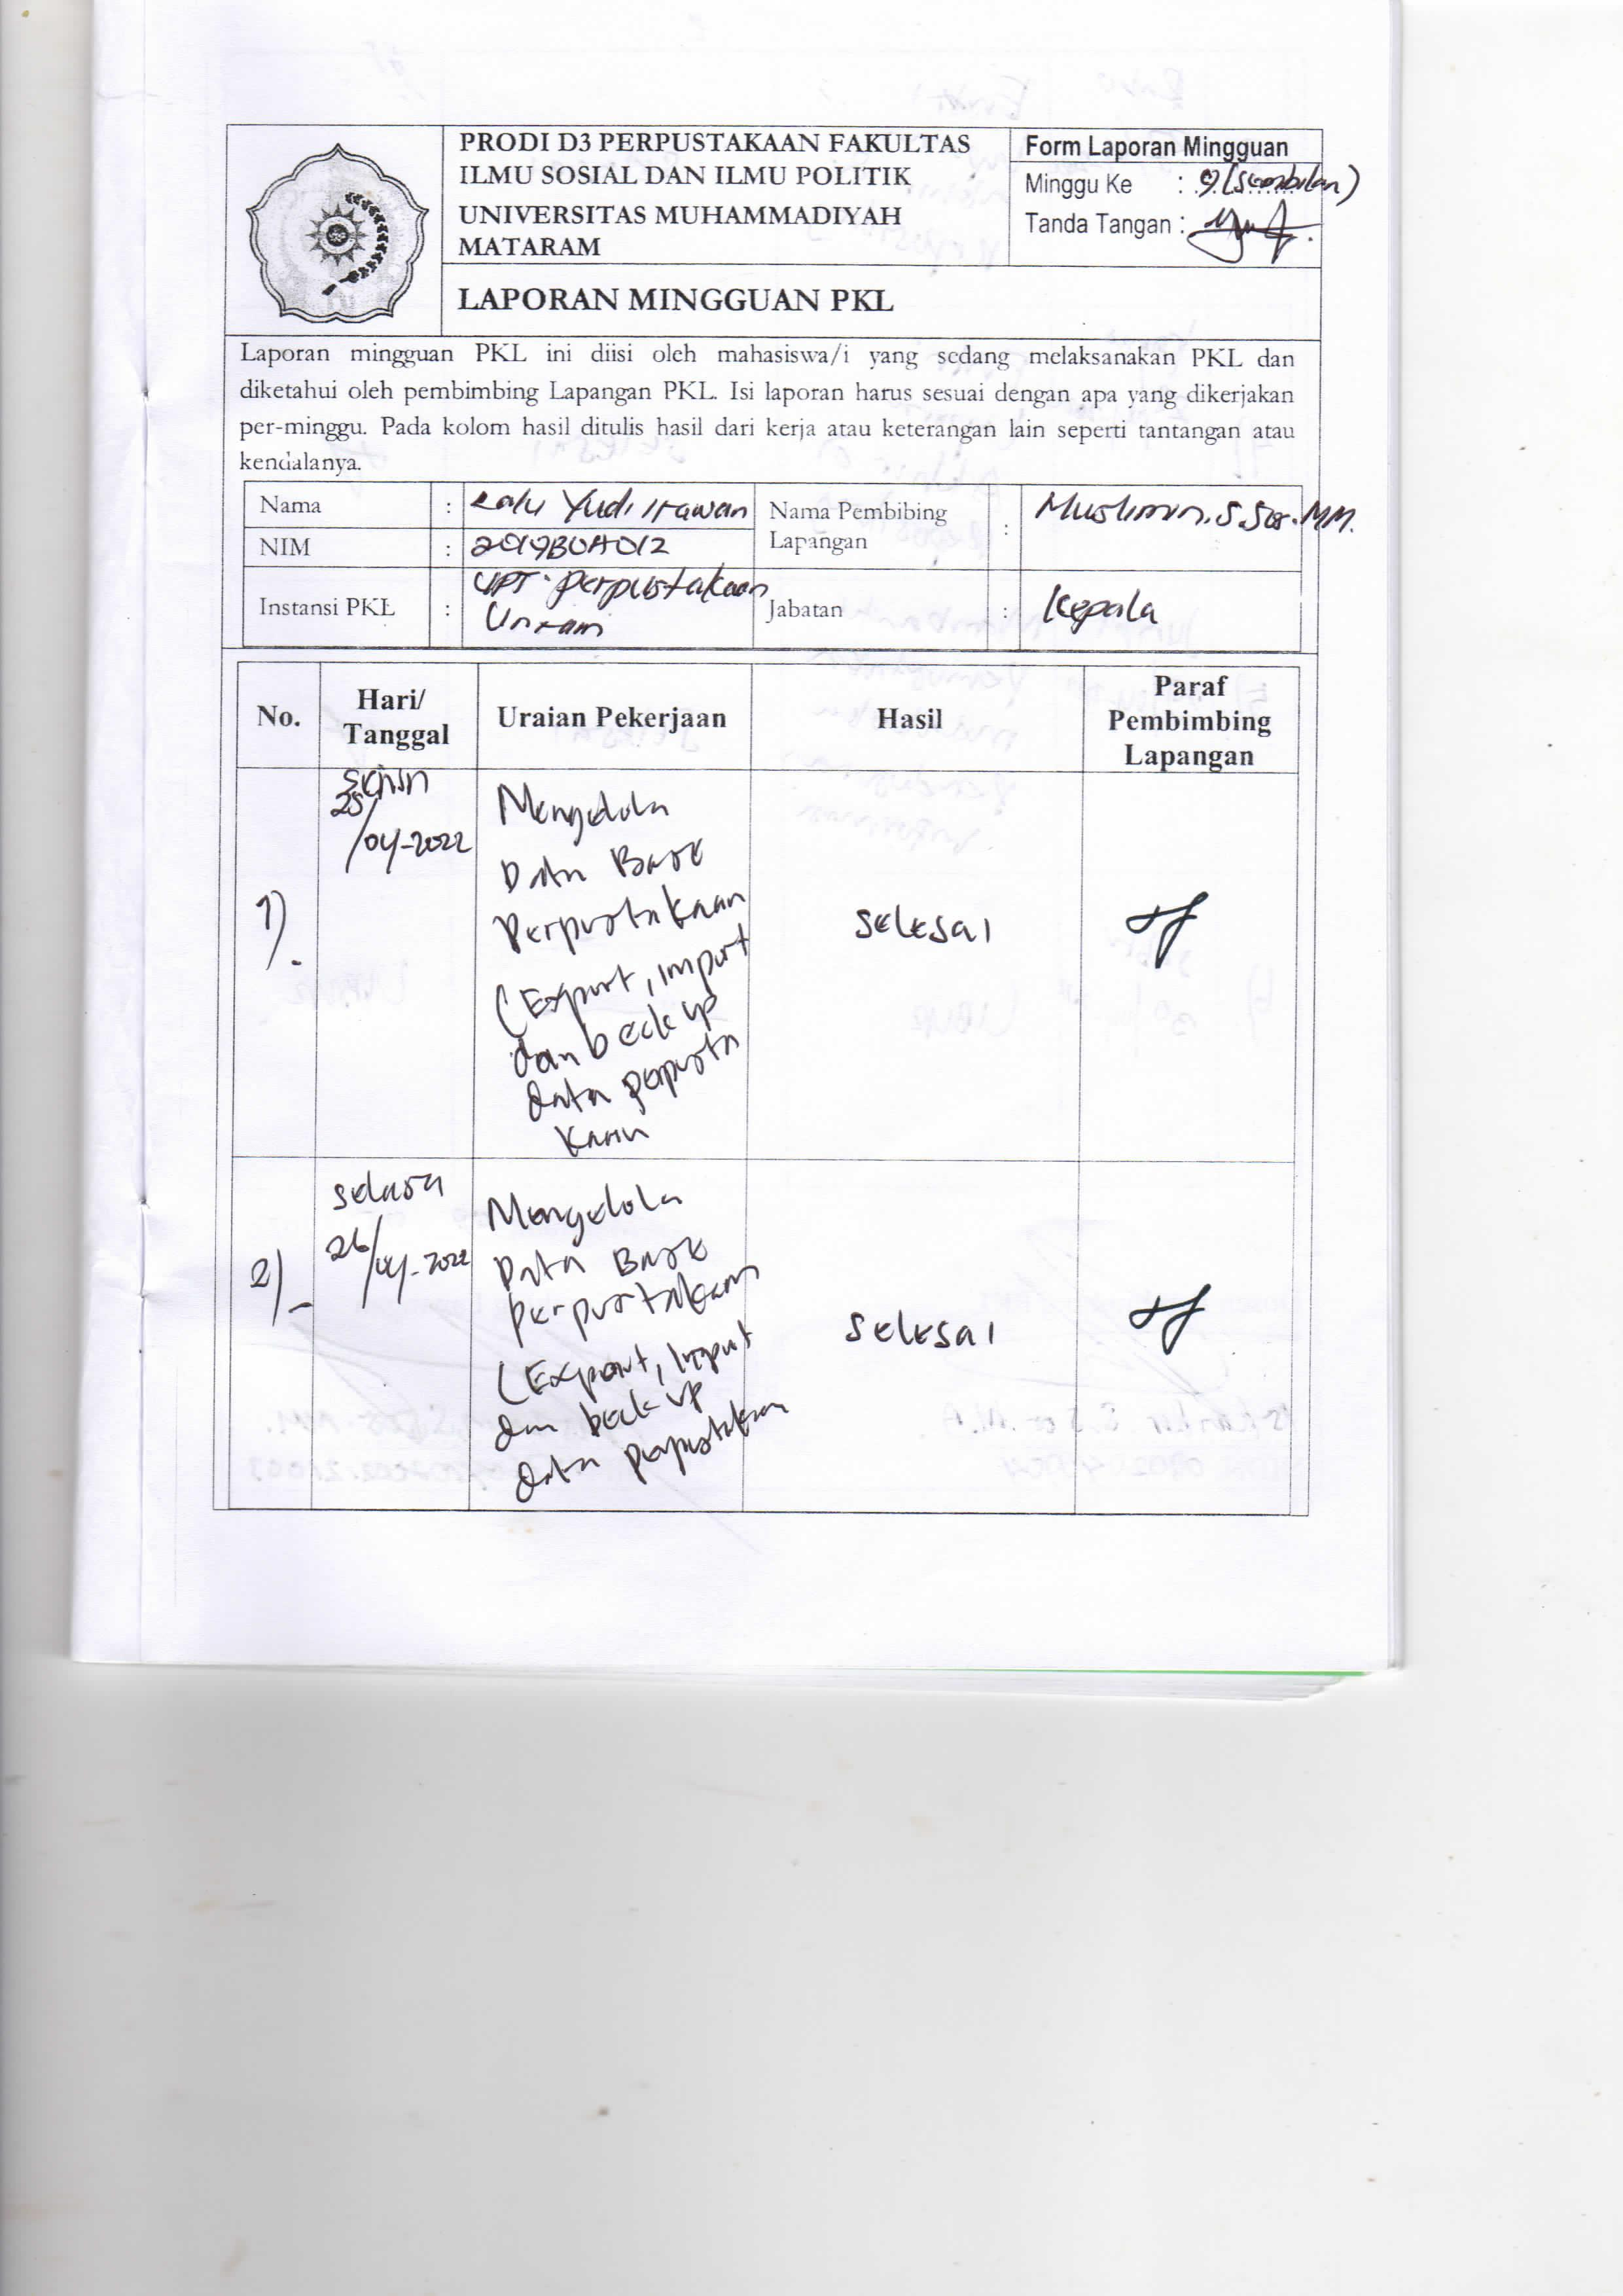 PRODI D3 PERPUSTAKAAN FAKULTAS
ILMU SOSIAL DAN ILMU POLITIK
UNIVERSITAS MUHAMMADIYAH
MATARAM
LAPORAN MINGGUAN PKL
Form Laporan Mingguan
Minggu Ke : 9 (Sembilan)
Tanda Tangan :
Laporan mingguan PKL ini diisi oleh mahasiswa/i yang sedang melaksanakan PKL dan
diketahui oleh pembimbing Lapangan PKL. Isi laporan harus sesuai dengan apa yang dikerjakan
per-minggu. Pada kolom hasil ditulis hasil dari kerja atau keterangan lain seperti tantangan atau
kendalanya.
Nama : Lalu Yudi Irawan
NIM : 2019B0A012
Instansi PKL : UPT. Perpustakaan
Unram
Nama Pembibing
Lapangan : Muslimin. S.Sos. MM.
Jabatan : Kepala
No.
Hari/
Tanggal
Uraian Pekerjaan
Hasil
Paraf
Pembimbing
Lapangan
1).
Senin
25/
/04-2022
Mengelola
Data Base
Perpustakaan
(Export, import
dan beck up
data perpusta
kaan
Selesai
2).
Selasa
26/04-2022
Mengelola
Data Base
perpustakaan
(Export, Import
dan beck up
data perpustakaan
Selesai